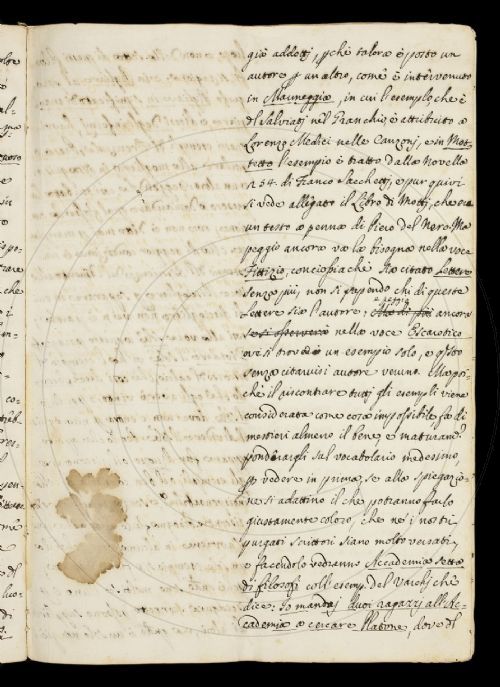 già addotti, pchè talora è posto un
autore p un altro, come è intervenuto
in Mauneggia, in cui l'esemplo, che è
dl Salviati nel Granchio, è attribuito a
Lorenzo Medici nelle Canzonj, e in Mot-
tetto l'esempio è tratto dalla Novella
254. di Franco Sacchetti, e pur quivi
si vede allegato il Libro di Motti, che era
un testo a penna di Piero del Nero. Ma
peggio ancora va la bisogna nella voce
Fittizio, conciosiachè sta citato Lettere
senza più, non si sapendo chi di queste
Lettere sia l'autore; ancora
nella voce Escautico
ove si trova un esempio solo, e
senza citarvisi autore veruno. Ma poi-
chè il riscontrare tutti gli esempli viene
considerata come cosa impossibile fa di
mestieri almeno il bene, e maturam.e
ponderargli sul vocabolario medesimo
p vedere in prima, se allo spiegazio-
ne si adattino il che potranno farlo
giustamente coloro, che ne i nostri
purgati scrittori siano molto versati,
e facendolo vedranno Accademia setta
di filosofi coll'esemp. del Varchi che
dice: Io mandai duoi ragazzi all'Ac-
cademia a cercare Platone, dove dl